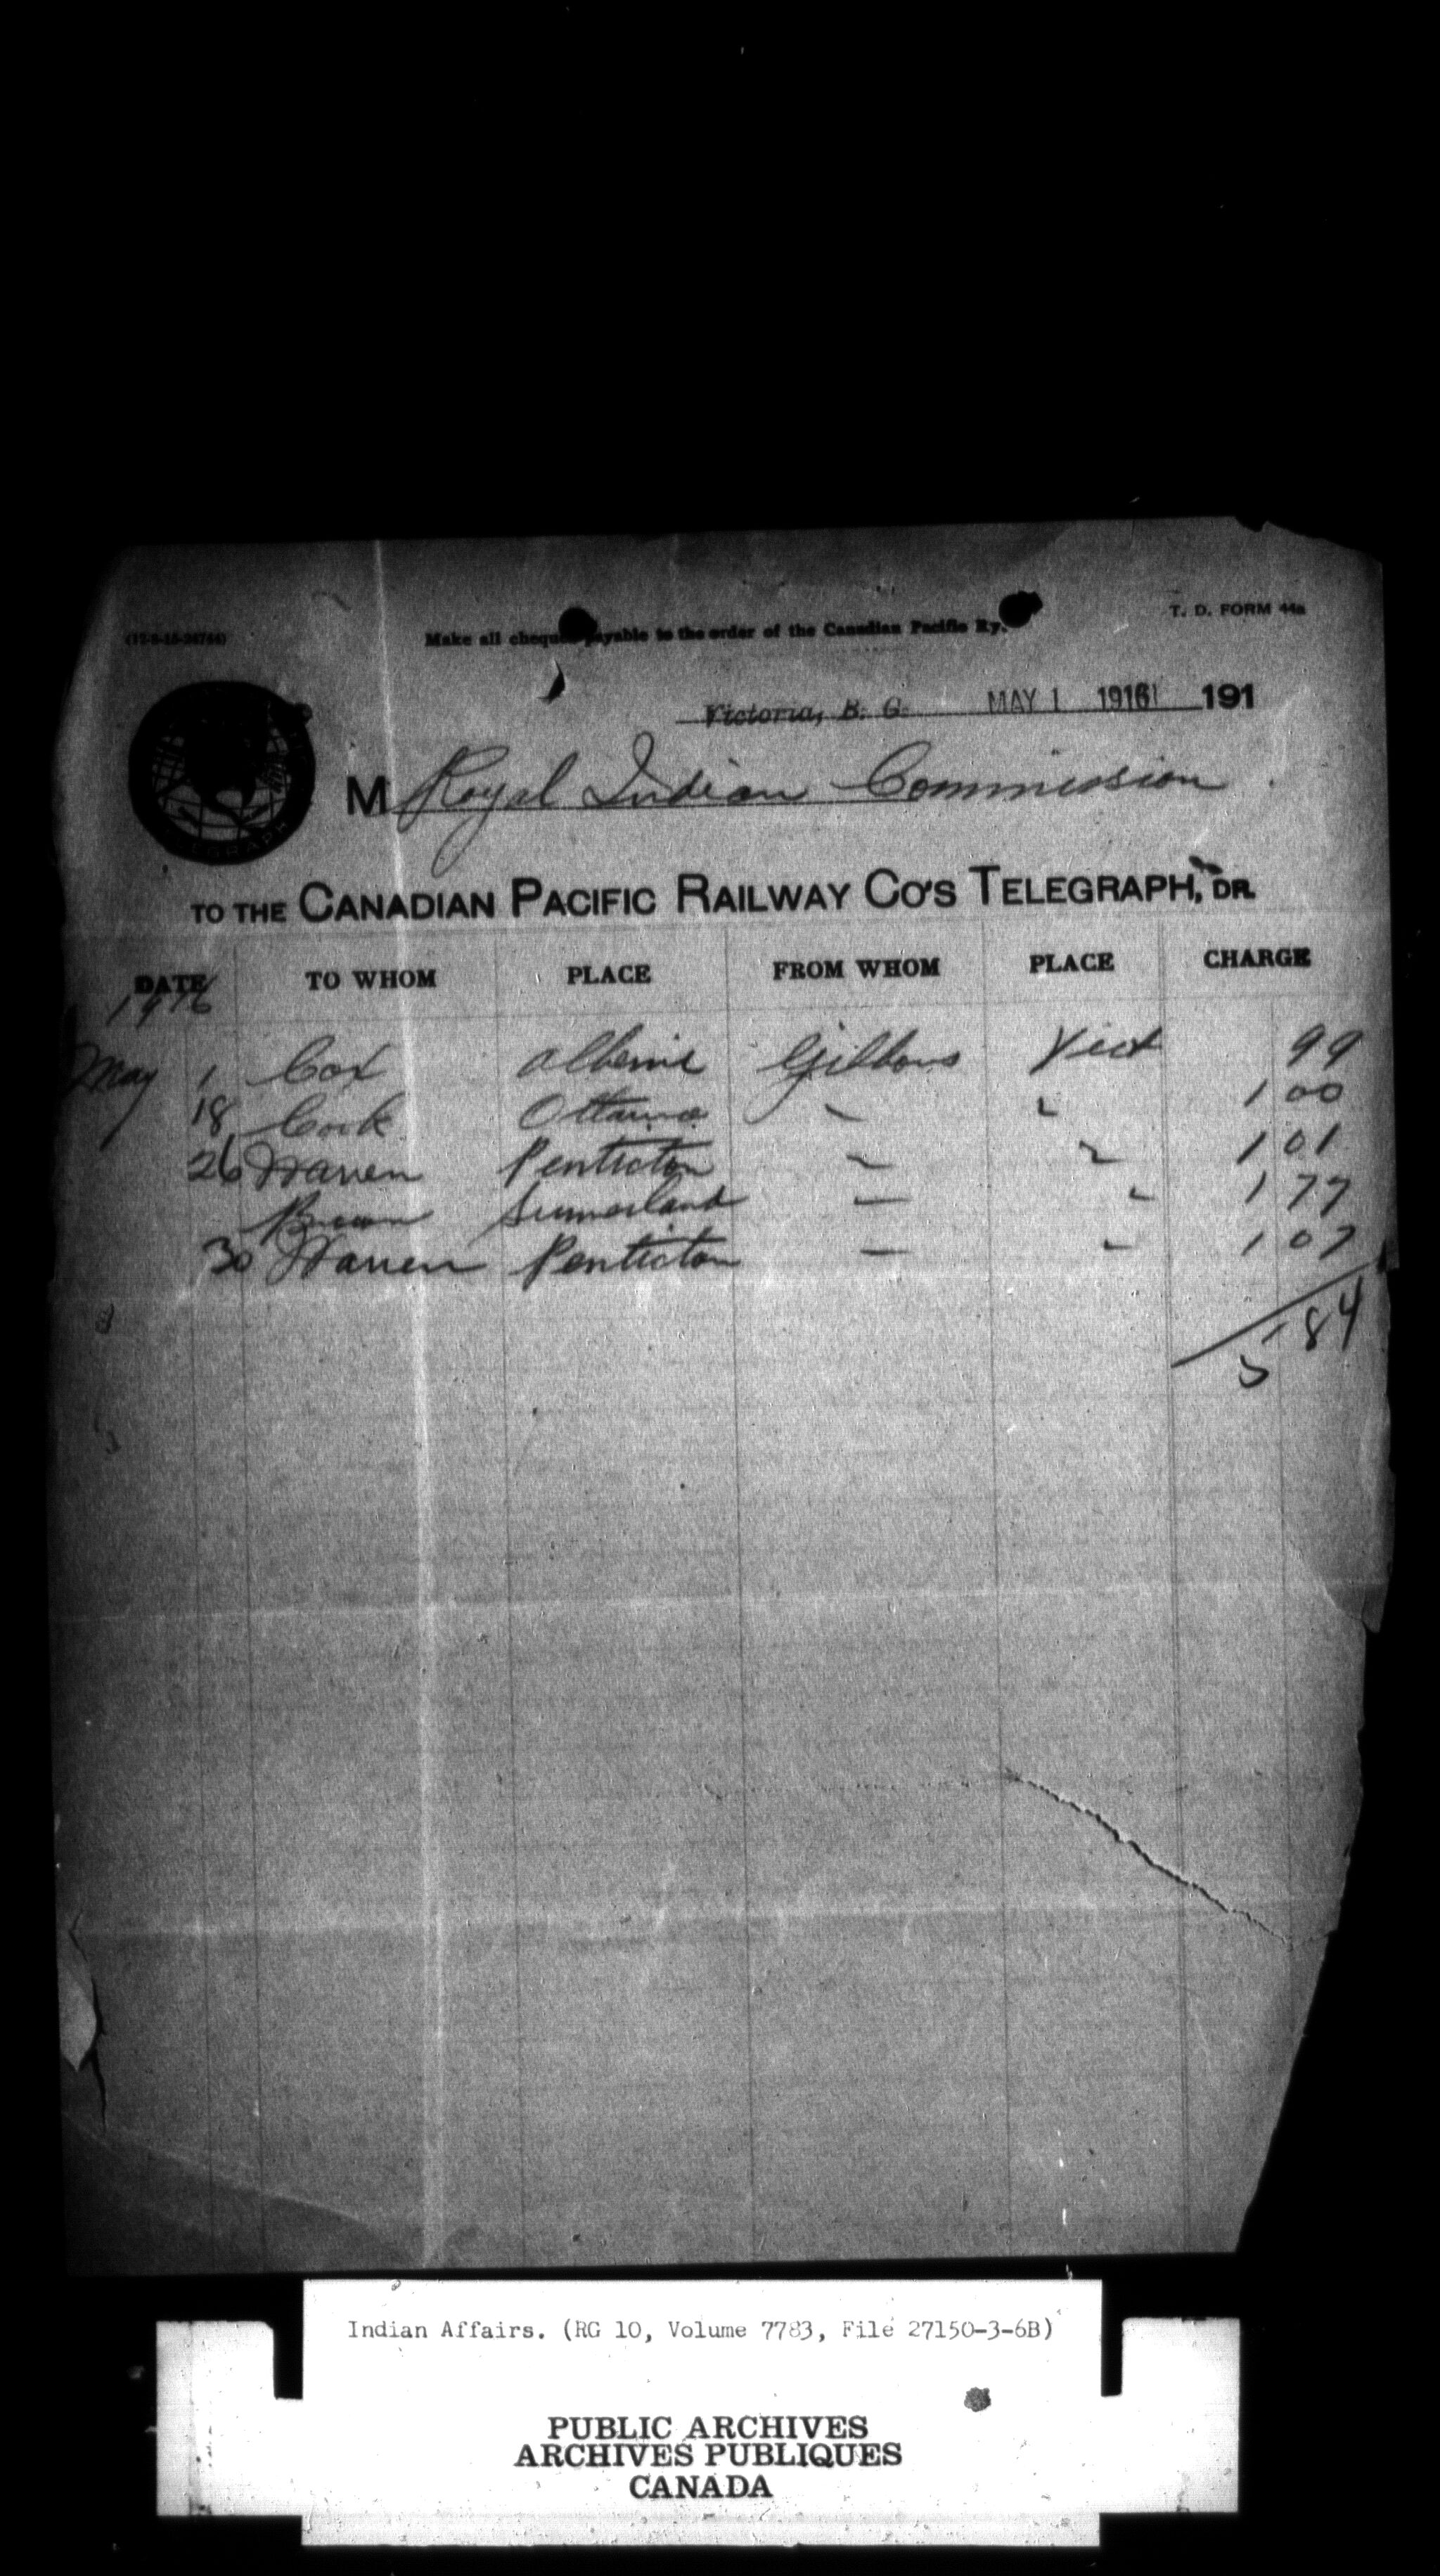 (12-8-15-24744)
Make all cheques payable to the order of the Canadian Pacific Ry.
T. D. FORM 44a
Victoria, B. C. MAY 1 1916 191
M Royal Indian Commission
TO THE CANADIAN PACIFIC RAILWAY CO'S TELEGRAPH, DR.
DATE TO WHOM PLACE FROM WHOM PLACE CHARGE
1916
May 1 Cox Alberni Gibbons Vict 99
18 Cook Ottawa " " 1 00
26 Warren Penticton " " 1 01
Brown Summerland " " 1 77
30 Warren Penticton " " 1 07
5 84
Indian Affairs. (RG 10, Volume 7783, File 27150-3-6B)
PUBLIC ARCHIVES
ARCHIVES PUBLIQUES
CANADA